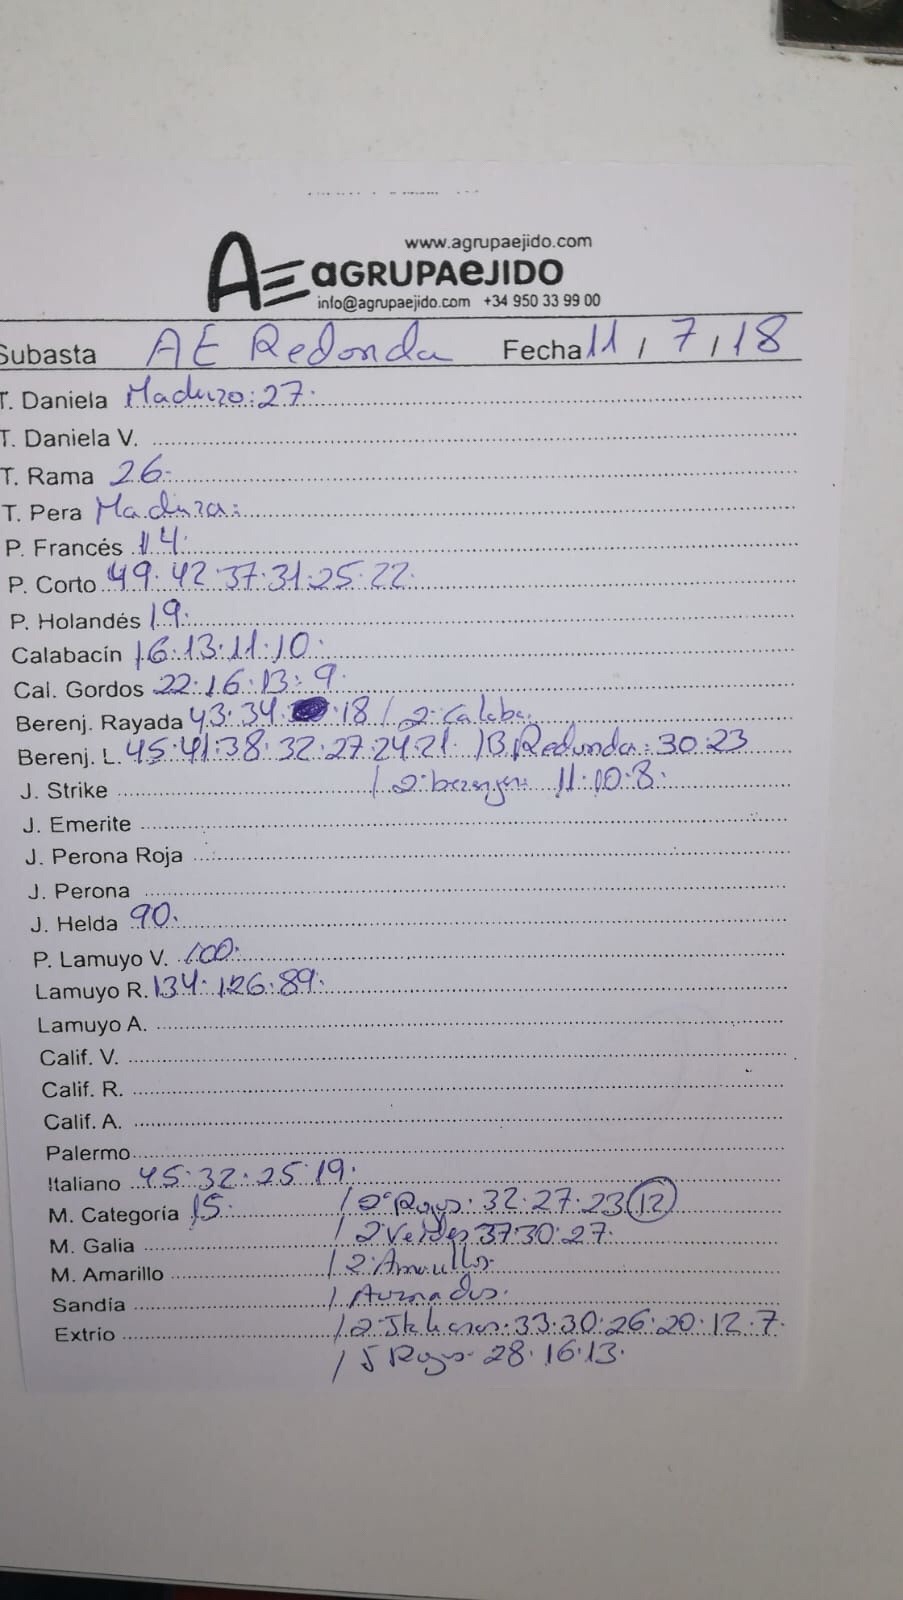 www.agrupaejido.com
AE aGRUPAeJIDO
info@agrupaejido.com +34 950 33 99 00
Subasta AE Redonda Fecha 11 / 7 / 18
T. Daniela Maduro: 27.
T. Daniela V.
T. Rama 26.
T. Pera Madura:
P. Francés 14.
P. Corto 49. 42. 37. 31. 25. 22.
P. Holandés 19.
Calabacín 16. 13. 11. 10.
Cal. Gordos 22. 16. 13. 9.
Berenj. Rayada 43. 34. 18 / 2º Calaba.
Berenj. L. 45. 41. 38. 32. 27. 24. 21. / B. Redonda: 30. 23
J. Strike / 2º berenjen: 11. 10. 8.
J. Emerite
J. Perona Roja
J. Perona
J. Helda 90.
P. Lamuyo V. 100.
Lamuyo R. 134. 126. 89.
Lamuyo A.
Calif. V.
Calif. R.
Calif. A.
Palermo
Italiano 45. 32. 25. 19.
M. Categoría 15. / 2º Rojos. 32. 27. 23 12
M. Galia / 2º Verdes 37. 30. 27.
M. Amarillo / 2º Amarillos.
Sandía / Asurados.
Extrio / 2º Italianos. 33. 30. 26. 20. 12. 7.
/ 5 Rojos. 28. 16. 13.